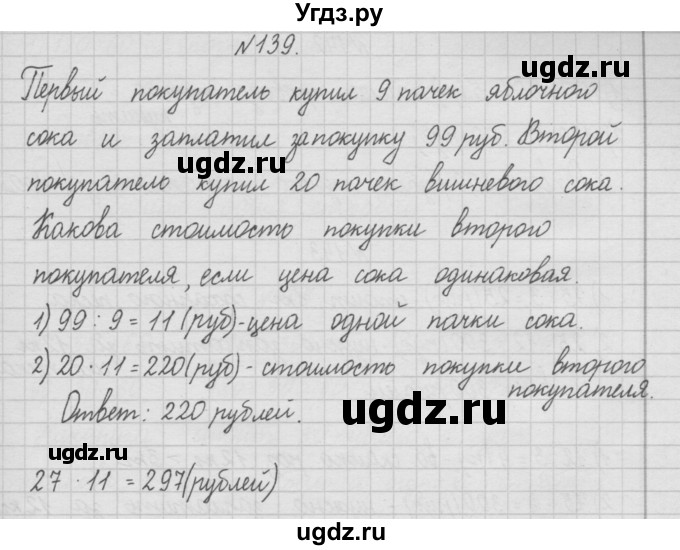 Угдз.ру
№139.
ugdz.ru
Первый покупатель купил 9 пачек яблочного
сока и заплатил за покупку 99 руб. Второй
ugdz.ru
покупатель купил 20 пачек вишневого сока.
Какова стоимость покупки второго
покупателя, если цена сока одинаковая.
1) 99 : 9 = 11 (руб)-цена одной пачки сока.
2) 20 · 11 = 220 (руб) - стоимость покупки второго
покупателя.
Ответ: 220 рублей.
ugdz.ru
ugdz.ru
27 · 11 = 297 (рублей)
ugdz.ru